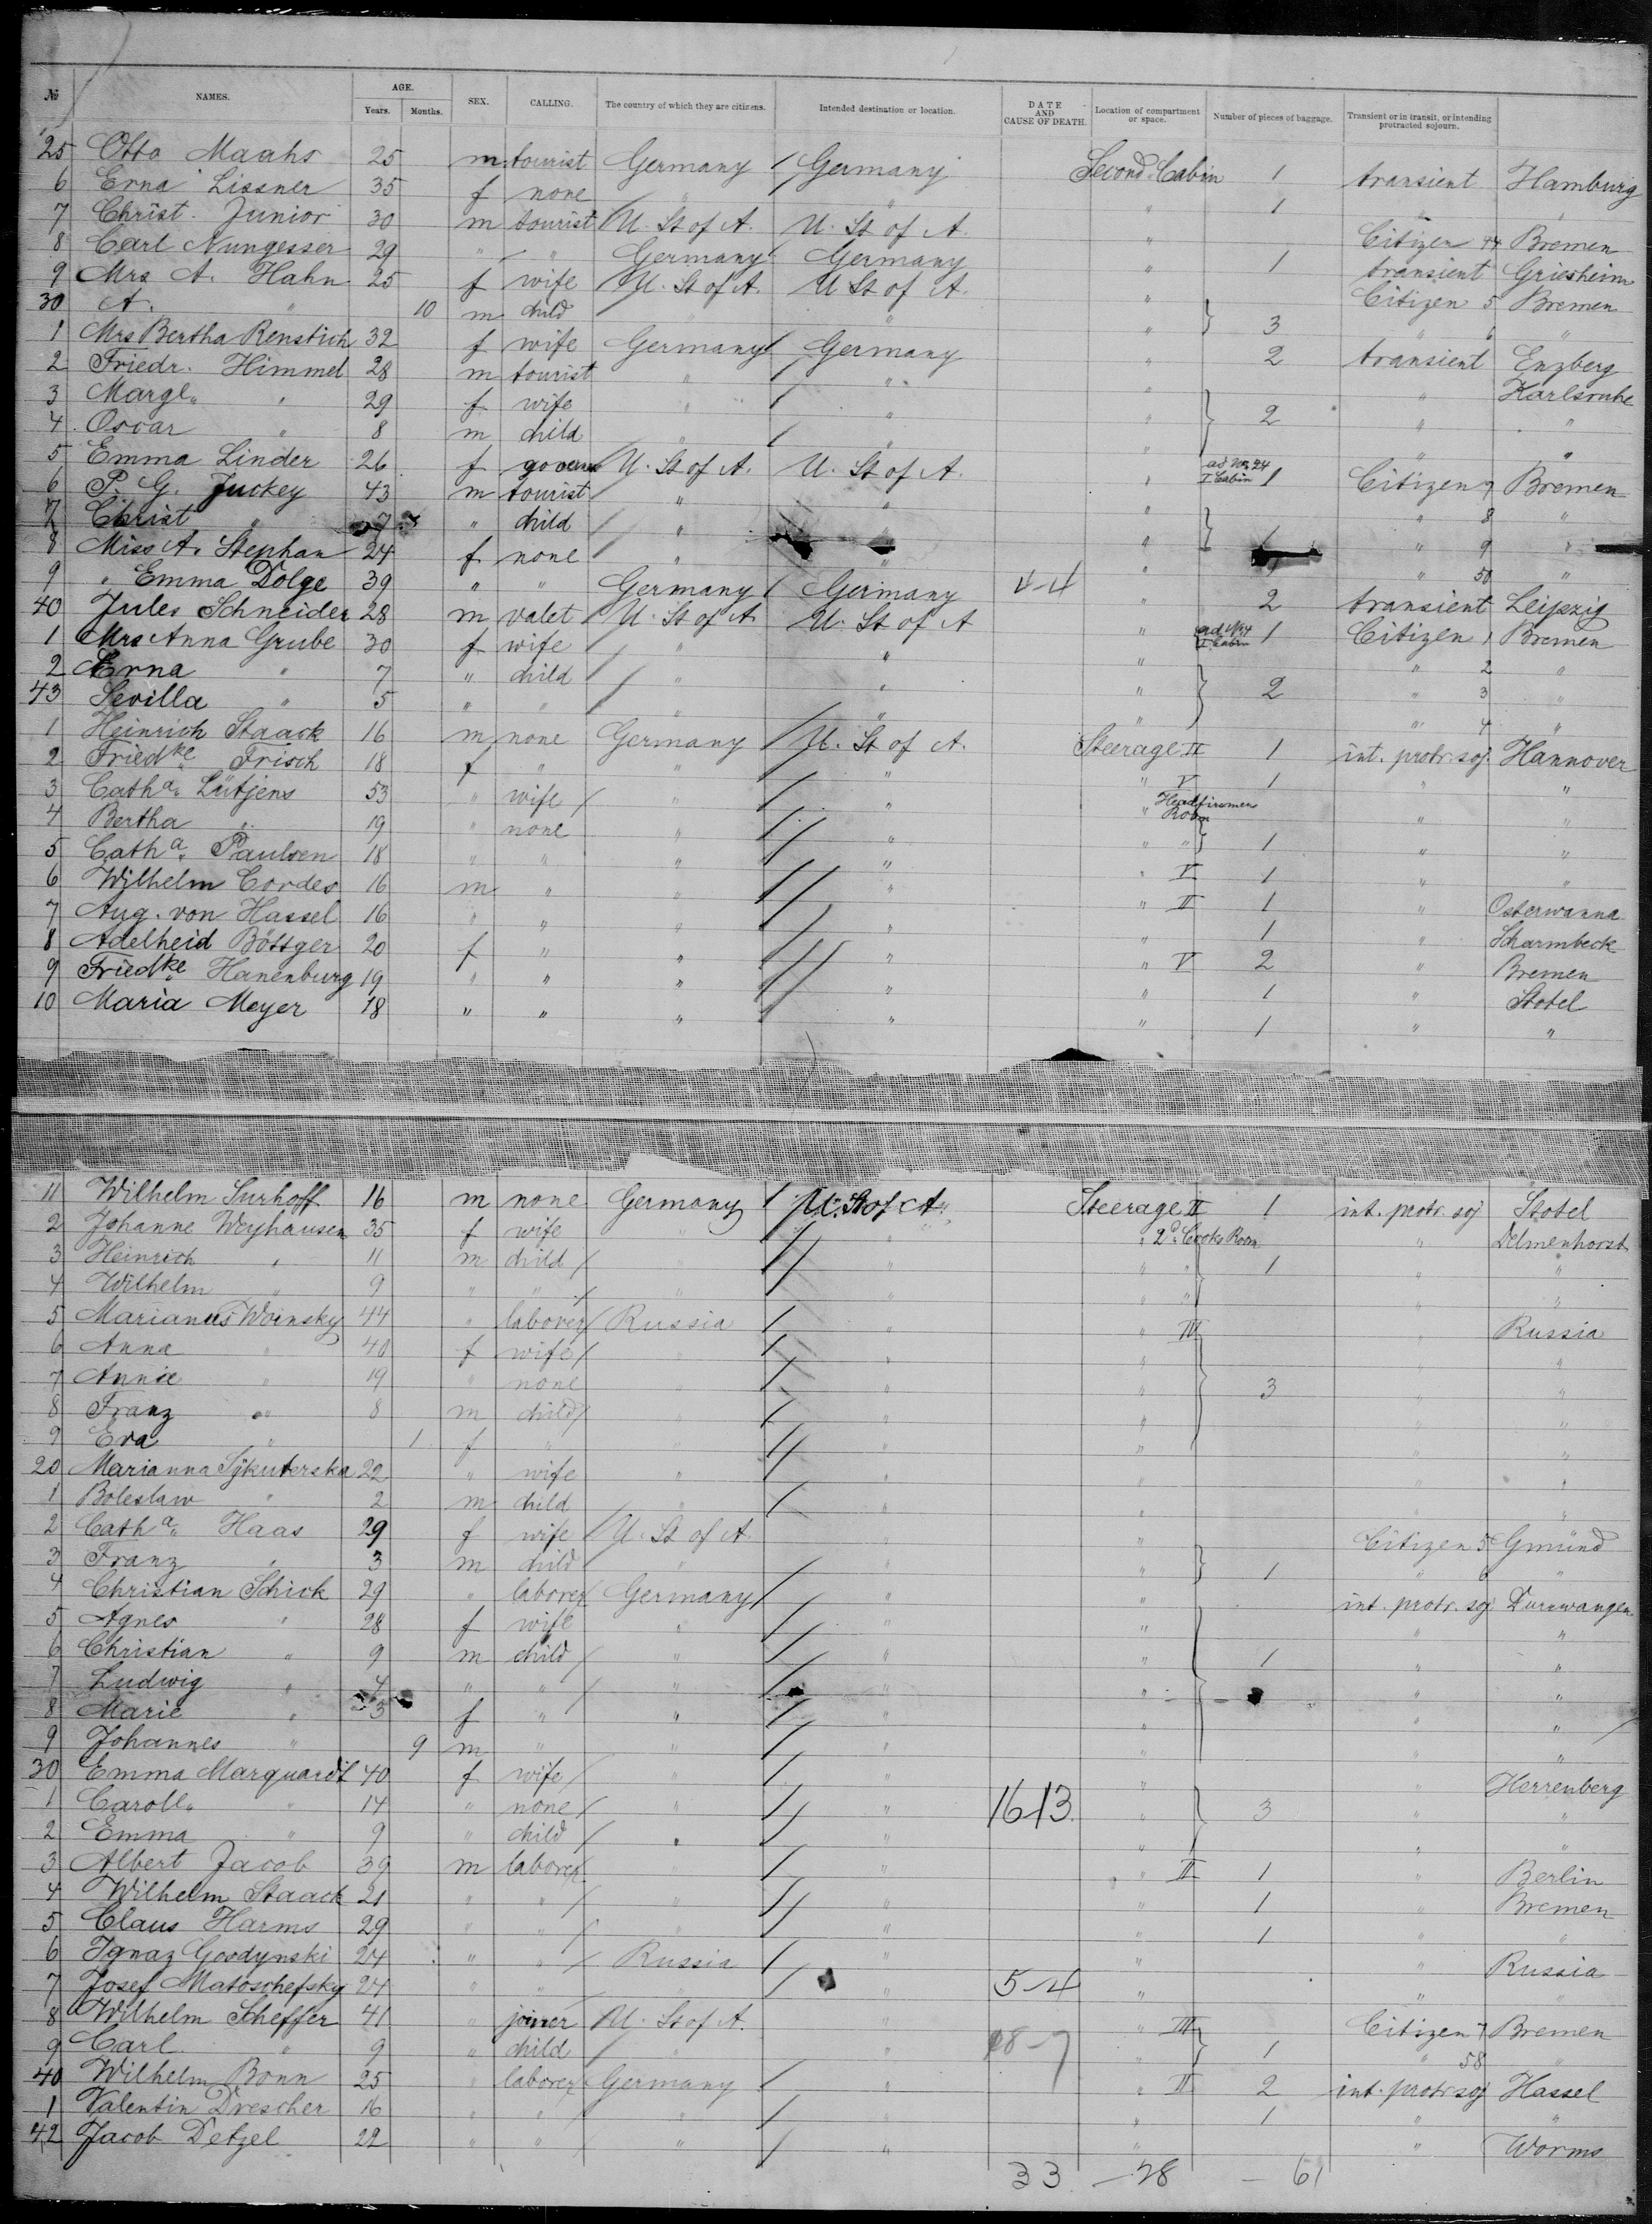 № NAMES. AGE. Years. Months. SEX. CALLING. The country of which they are citizens. Intended destination or location. DATE AND CAUSE OF DEATH. Location of compartment or space. Number of pieces of baggage. Transient or in transit, or intending protracted sojourn.
25 Otto Maahs 25 m tourist Germany Germany Second Cabin 1 transient Hamburg
6 Erna Lissner 35 f none " " " 1 " "
7 Christ. Junior 30 m tourist U. St of A. U. St of A. " Citizen 44 Bremen
8 Carl Nungesser 29 " " Germany Germany " 1 transient Griesheim
9 Mrs A. Hahn 25 f wife U. St of A. U St of A. " Citizen 5 Bremen
30 A. " 10 m child " " " 3 " 6 "
1 Mrs Bertha Renstich 32 f wife Germany Germany " 2 transient Enzberg
2 Friedr. Himmel 28 m tourist " " " " Karlsruhe
3 Margt. " 29 f wife " " " 2 " "
4 Oscar " 8 m child " " " " "
5 Emma Linder 26 f govern U. St of A. U. St of A. " ad No 24 I Cabin 1 Citizen 7 Bremen
6 P. G. Juckey 43 m tourist " " " " 8 "
7 Christ " 7 " child " " " " 9 "
8 Miss A. Stephan 24 f none " " " " 50 "
9 " Emma Dolge 39 " " Germany Germany 4-4 " 2 transient Leipzig
40 Jules Schneider 28 m valet U. St of A. U. St of A " 1 Citizen 1 Bremen
1 Mrs Anna Grube 30 f wife " " " " 2 "
2 Erna " 7 " child " " " 2 " 3 "
43 Sevilla " 5 " " " " " " 4 "
1 Heinrich Staack 16 m none Germany U. St of A. Steerage II 1 int. protr. soj. Hannover
2 Friedke Frisch 18 f " " " " V 1 " "
3 Catha. Lütjens 53 " wife " " " Headfiremen Room " "
4 Bertha " 19 " none " " " " 1 " "
5 Catha. Paulsen 18 " " " " " V 1 " "
6 Wilhelm Cordes 16 m " " " " II 1 " Osterwanna
7 Aug. von Hassel 16 " " " " " 1 " Scharmbeck
8 Adelheid Böttger 20 f " " " " V 2 " Bremen
9 Friedke Hanenburg 19 " " " " " 1 " Stotel
10 Maria Meyer 18 " " " " " 1 " "
11 Wilhelm Surhoff 16 m none Germany U. St of A. Steerage II 1 int. protr. soj Stotel
2 Johanne Weyhausen 35 f wife " " " 2d Cooks Room " Delmenhorst
3 Heinrich " 11 m child " " " " 1 " "
4 Wilhelm " 9 " " " " " " " "
5 Marianus Woinsky 44 " laborer Russia " " IV " Russia
6 Anna " 40 f wife " " " " "
7 Annie " 19 " none " " " 3 " "
8 Franz " 8 m child " " " " "
9 Eva " 1 f " " " " " "
20 Marianna Sykuterska 22 " wife " " " " "
1 Boleslaw " 2 m child " " " " "
2 Catha. Haas 29 f wife U. St of A. " " Citizen 5 Gmünd
3 Franz " 3 m child " " " 1 " 6 "
4 Christian Schick 29 " laborer Germany " " int. protr. soj Durrwangen
5 Agnes " 28 f wife " " " " "
6 Christian " 9 m child " " " 1 " "
7 Ludwig " 4 " " " " " " "
8 Marie " 3 f " " " " " "
9 Johannes " 9 m " " " " " "
30 Emma Marquardt 40 f wife " " " " Herrenberg
1 Caroll. " 14 " none " " 16 13 " 3 " "
2 Emma " 9 " child " " " " "
3 Albert Jacob 39 m laborer " " " II 1 " Berlin
4 Wilhelm Staack 21 " " " " " 1 " Bremen
5 Claus Harms 29 " " " " " 1 " "
6 Ignaz Goodynski 24 " " Russia " " " Russia
7 Josef Matoschefsky 24 " " " " 5-4 " " "
8 Wilhelm Scheffer 41 " joiner U. St of A. " " III Citizen 7 Bremen
9 Carl " 9 " child " " 8-7 " 1 " 58 "
40 Wilhelm Bonn 25 " laborer Germany " " II 2 int. protr. soj Hassel
1 Valentin Drescher 16 " " " " " 1 " "
42 Jacob Detzel 22 " " " " " " Worms
33 - 28 - 61